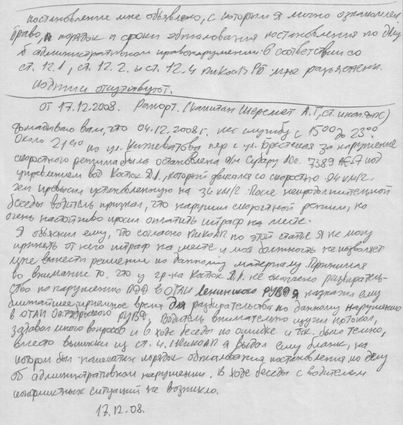 постановление мне объявлено, с которым я лично ознакомлен
право, и порядок и сроки обжалования постановления по делу
об административном правонарушении в соответствии со
ст. 12.1, ст. 12.2 и ст. 12.4 ПИКоАП РБ мне разъяснены.
подписи отсутствуют.
от 17.12.2008. Рапорт. (Капитан Шеремет А.Г.,
Докладываю вам, что 04.12.2008г. нес службу с 15 00 до 23 00.
Около 21 40 по ул. Кижеватова пер с ул. Брестская за нарушение
скоростного режима была остановлена а/м Субару гос. 7389 под
управлением вод. Каток который двигался со скоростью
превысив установленную на 34 км/с. После непродолжительной
беседы водитель признал, что нарушил скоростной режим, но
очень настойчиво просил оплатить штраф на месте.
Я объяснил ему, что согласно ПИКоАП по этой статье Я не могу
принять от него штраф на месте и моя должность не позволяет
мне вынести решение по данному материалу. Принимая
во внимание то, что у гр-на Каток не окончено разбиратель-
ство по нарушению ПДД в ОГАИ Ленинского РУВД я назначил ему
ближайшее время для разбирательства по данному нарушению
в ОГАИ Октябрьского РУВД. Водитель внимательно изучил протокол,
задавал много вопросов и в ходе беседы по ошибке
вместо выписки из ст. ПИКоАП я выдал ему бланк, на
котором был напечатан порядок обжалования постановления по делу
об административном нарушении. В ходе беседы с водителем
конфликтных ситуаций не возникло.
17.12.08.